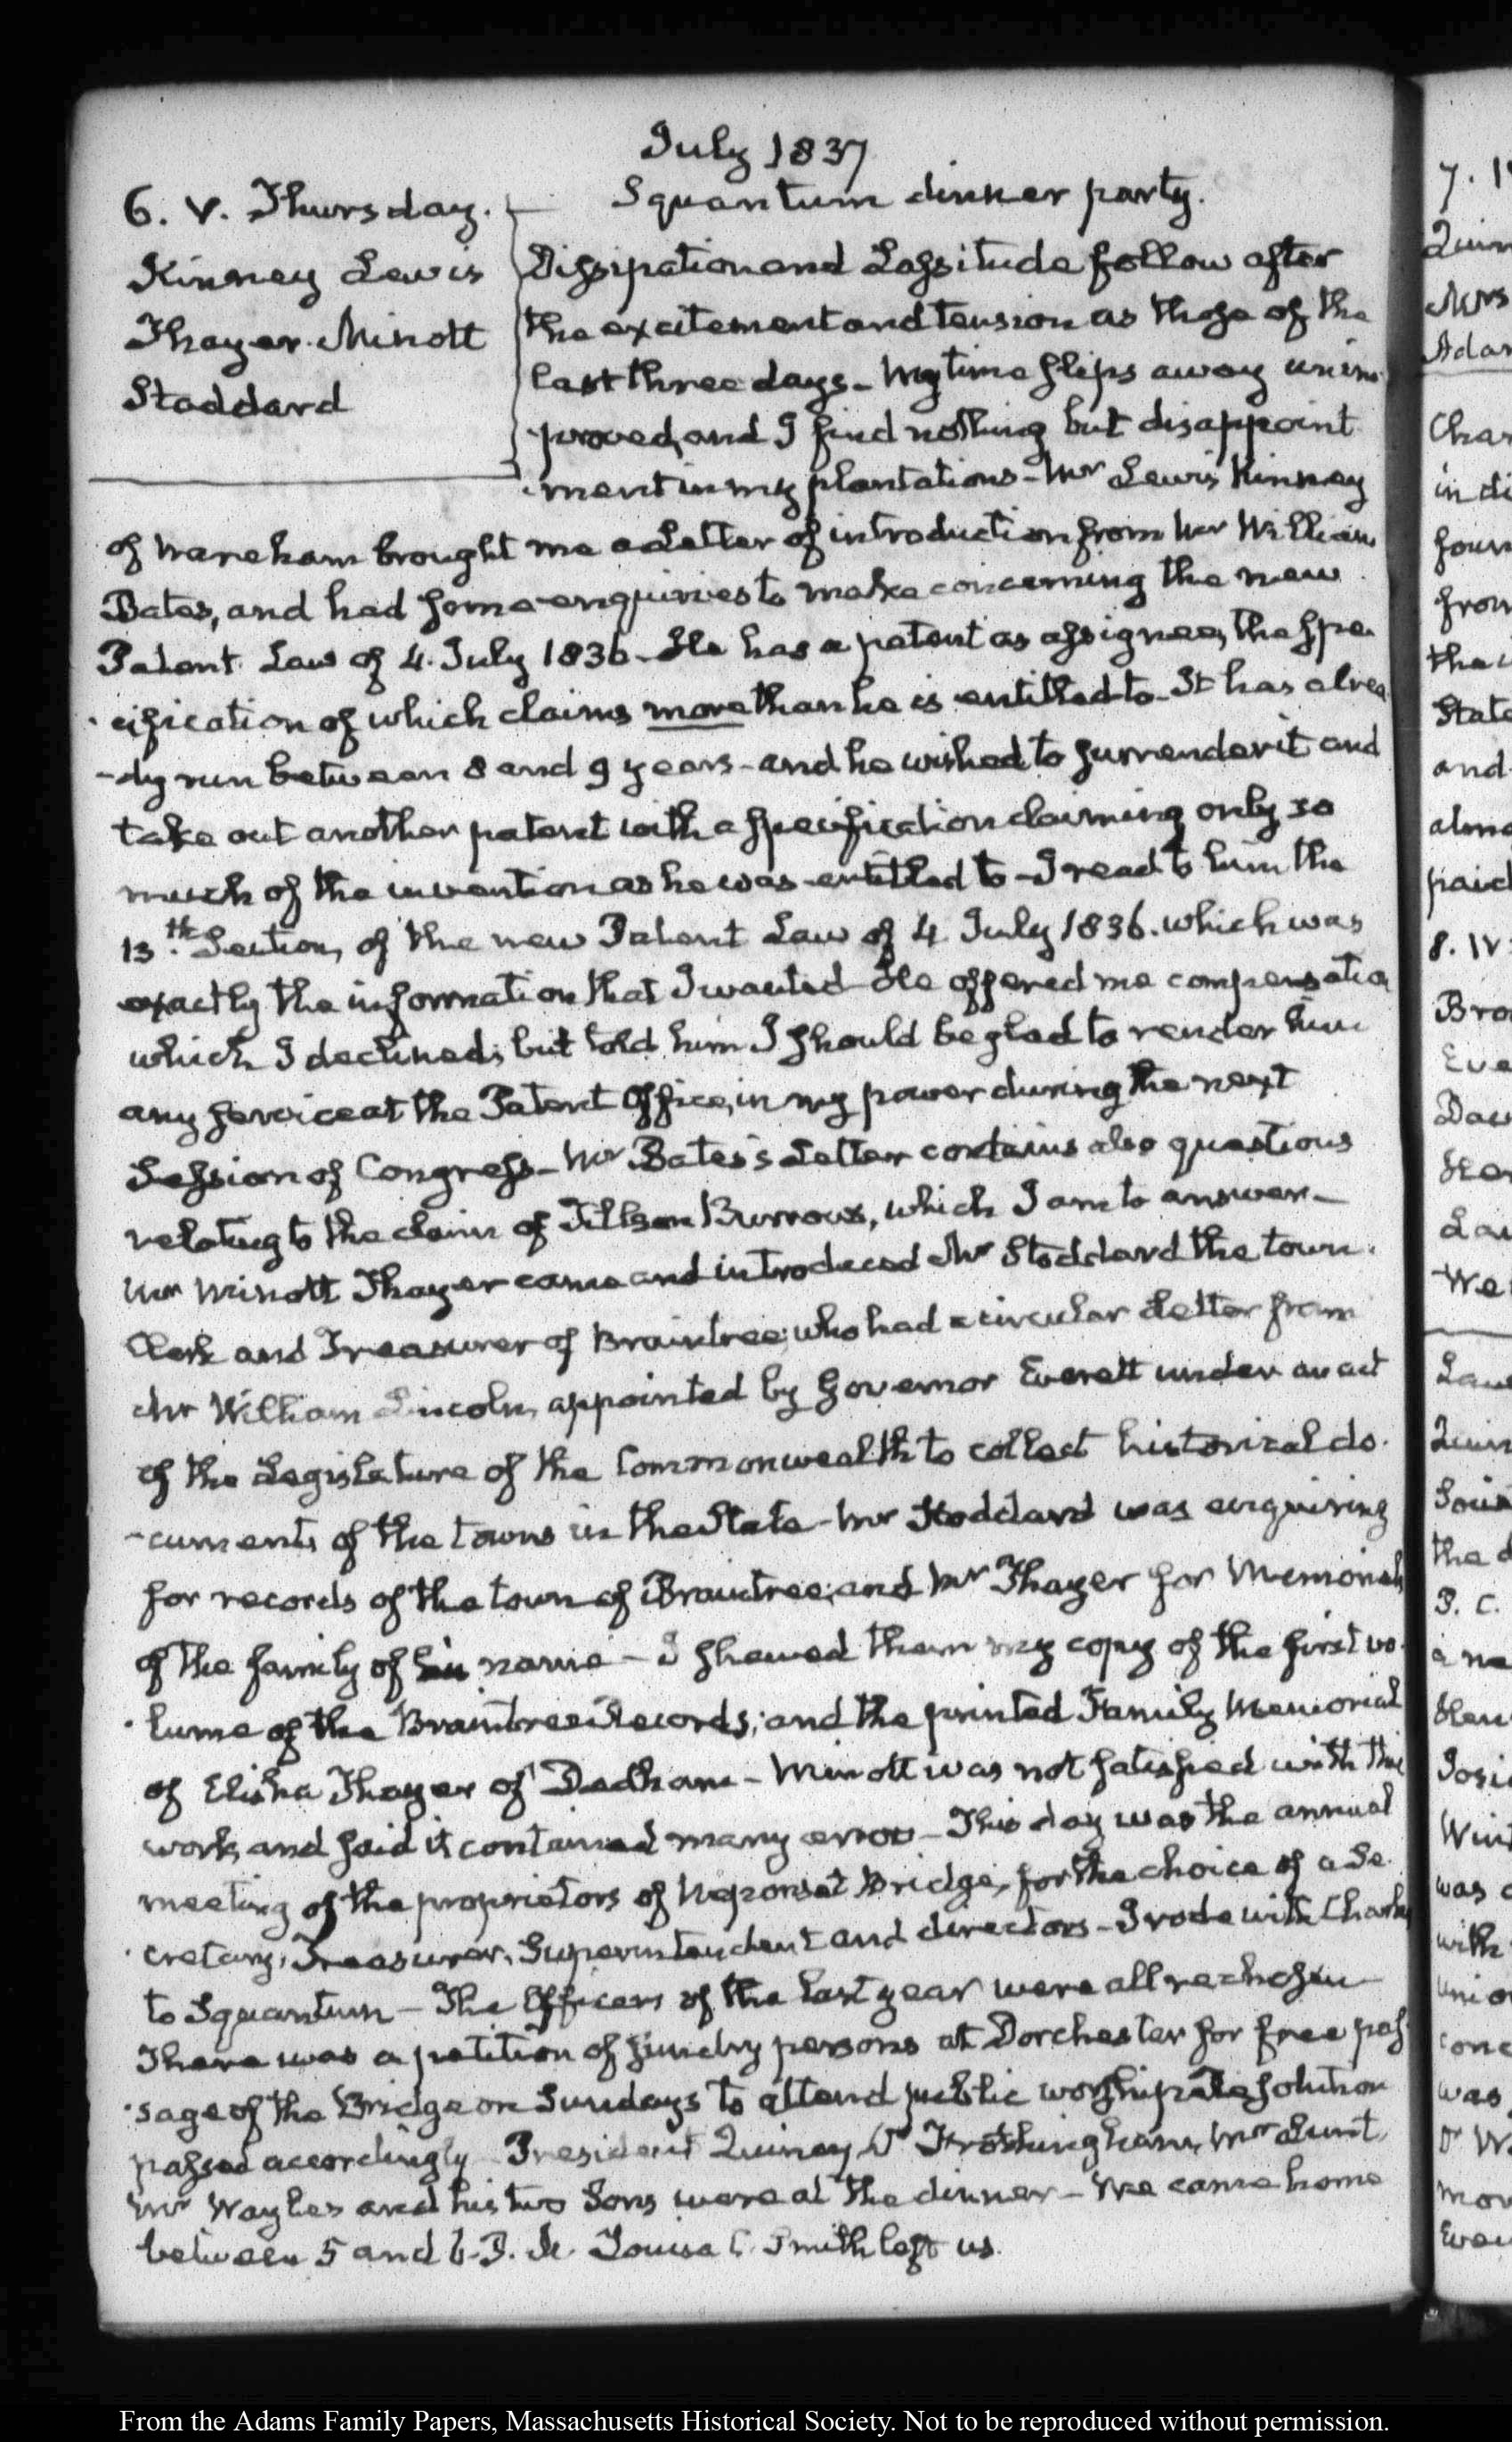 July 1837
6. V. Thursday. Squantum dinner party.
Kinney Lewis
Thayer. Minott
Stoddard
Dissipation and Lassitude follow after
the excitement and tension as those of the
last three days – My time slips away unim
-proved, and I find nothing but disappoint
-ment in my plantations – Mr Lewis Kinney
of Wareham brought me a Letter of introduction from Mr William
Bates, and had some enquiries to make concerning the new
Patent Law of 4. July 1836 – He has a patent as assignee, the spe-
-cification of which claims more than he is entitled to – It has alrea
-dy run between 8 and 9 years – and he wished to surrender it and
take out another patent with a specification claiming only so
much of the invention as he was entitled to – I read to him the
13.th Section, of the new Patent Law of 4 July 1836. which was
exactly the information that I wanted – He offered me compensation
which I declined; but told him I should be glad to render him
any service at the Patent Office, in my power during the next
Session of Congress – Mr Bates's Letter contains also questions
relating to the claim of Tillson Burrows, which I am to answer –
Mr Minott Thayer came and introduced Mr Stoddard the town.
Clerk and Treasurer of Braintree; who had a circular Letter from
Mr William Lincoln, appointed by Governor Everett under an act
of the Legislature of the Commonwealth to collect historical do-
-cuments of the towns in the State – Mr Stoddard was enquiring
for records of the town of Braintree; and Mr Thayer for Memorials
of the family of his name – I shewed them my copy of the first vo-
-lume of the Braintree Records; and the printed Family Memorial
of Elisha Thayer of Dedham – Minott was not satisfied with this
work, and said it contained many errors – This day was the annual
meeting of the proprietors of Neponset Bridge, for the choice of a Se-
-cretary, Treasurer, Superintendent and directors – I rode with Charles
to Squantum – The Officers of the last year were all rechosen –
There was a petition of sundry persons at Dorchester for free pas
-sage of the Bridge on Sundays to attend public worship. Resolution
passed accordingly – President Quincy, Dr Frothingham, Mr Lunt,
Mr and his two Sons were at the dinner – We came home
between 5 and 6. P. M. Louisa C. Smith left us.
7.
8. IV.
From the Adams Family Papers, Massachusetts Historical Society. Not to be reproduced without permission.